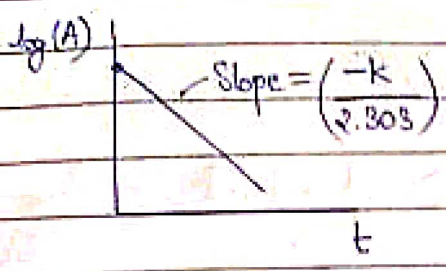 log(A)
Slope = (-k / 2.303)
t